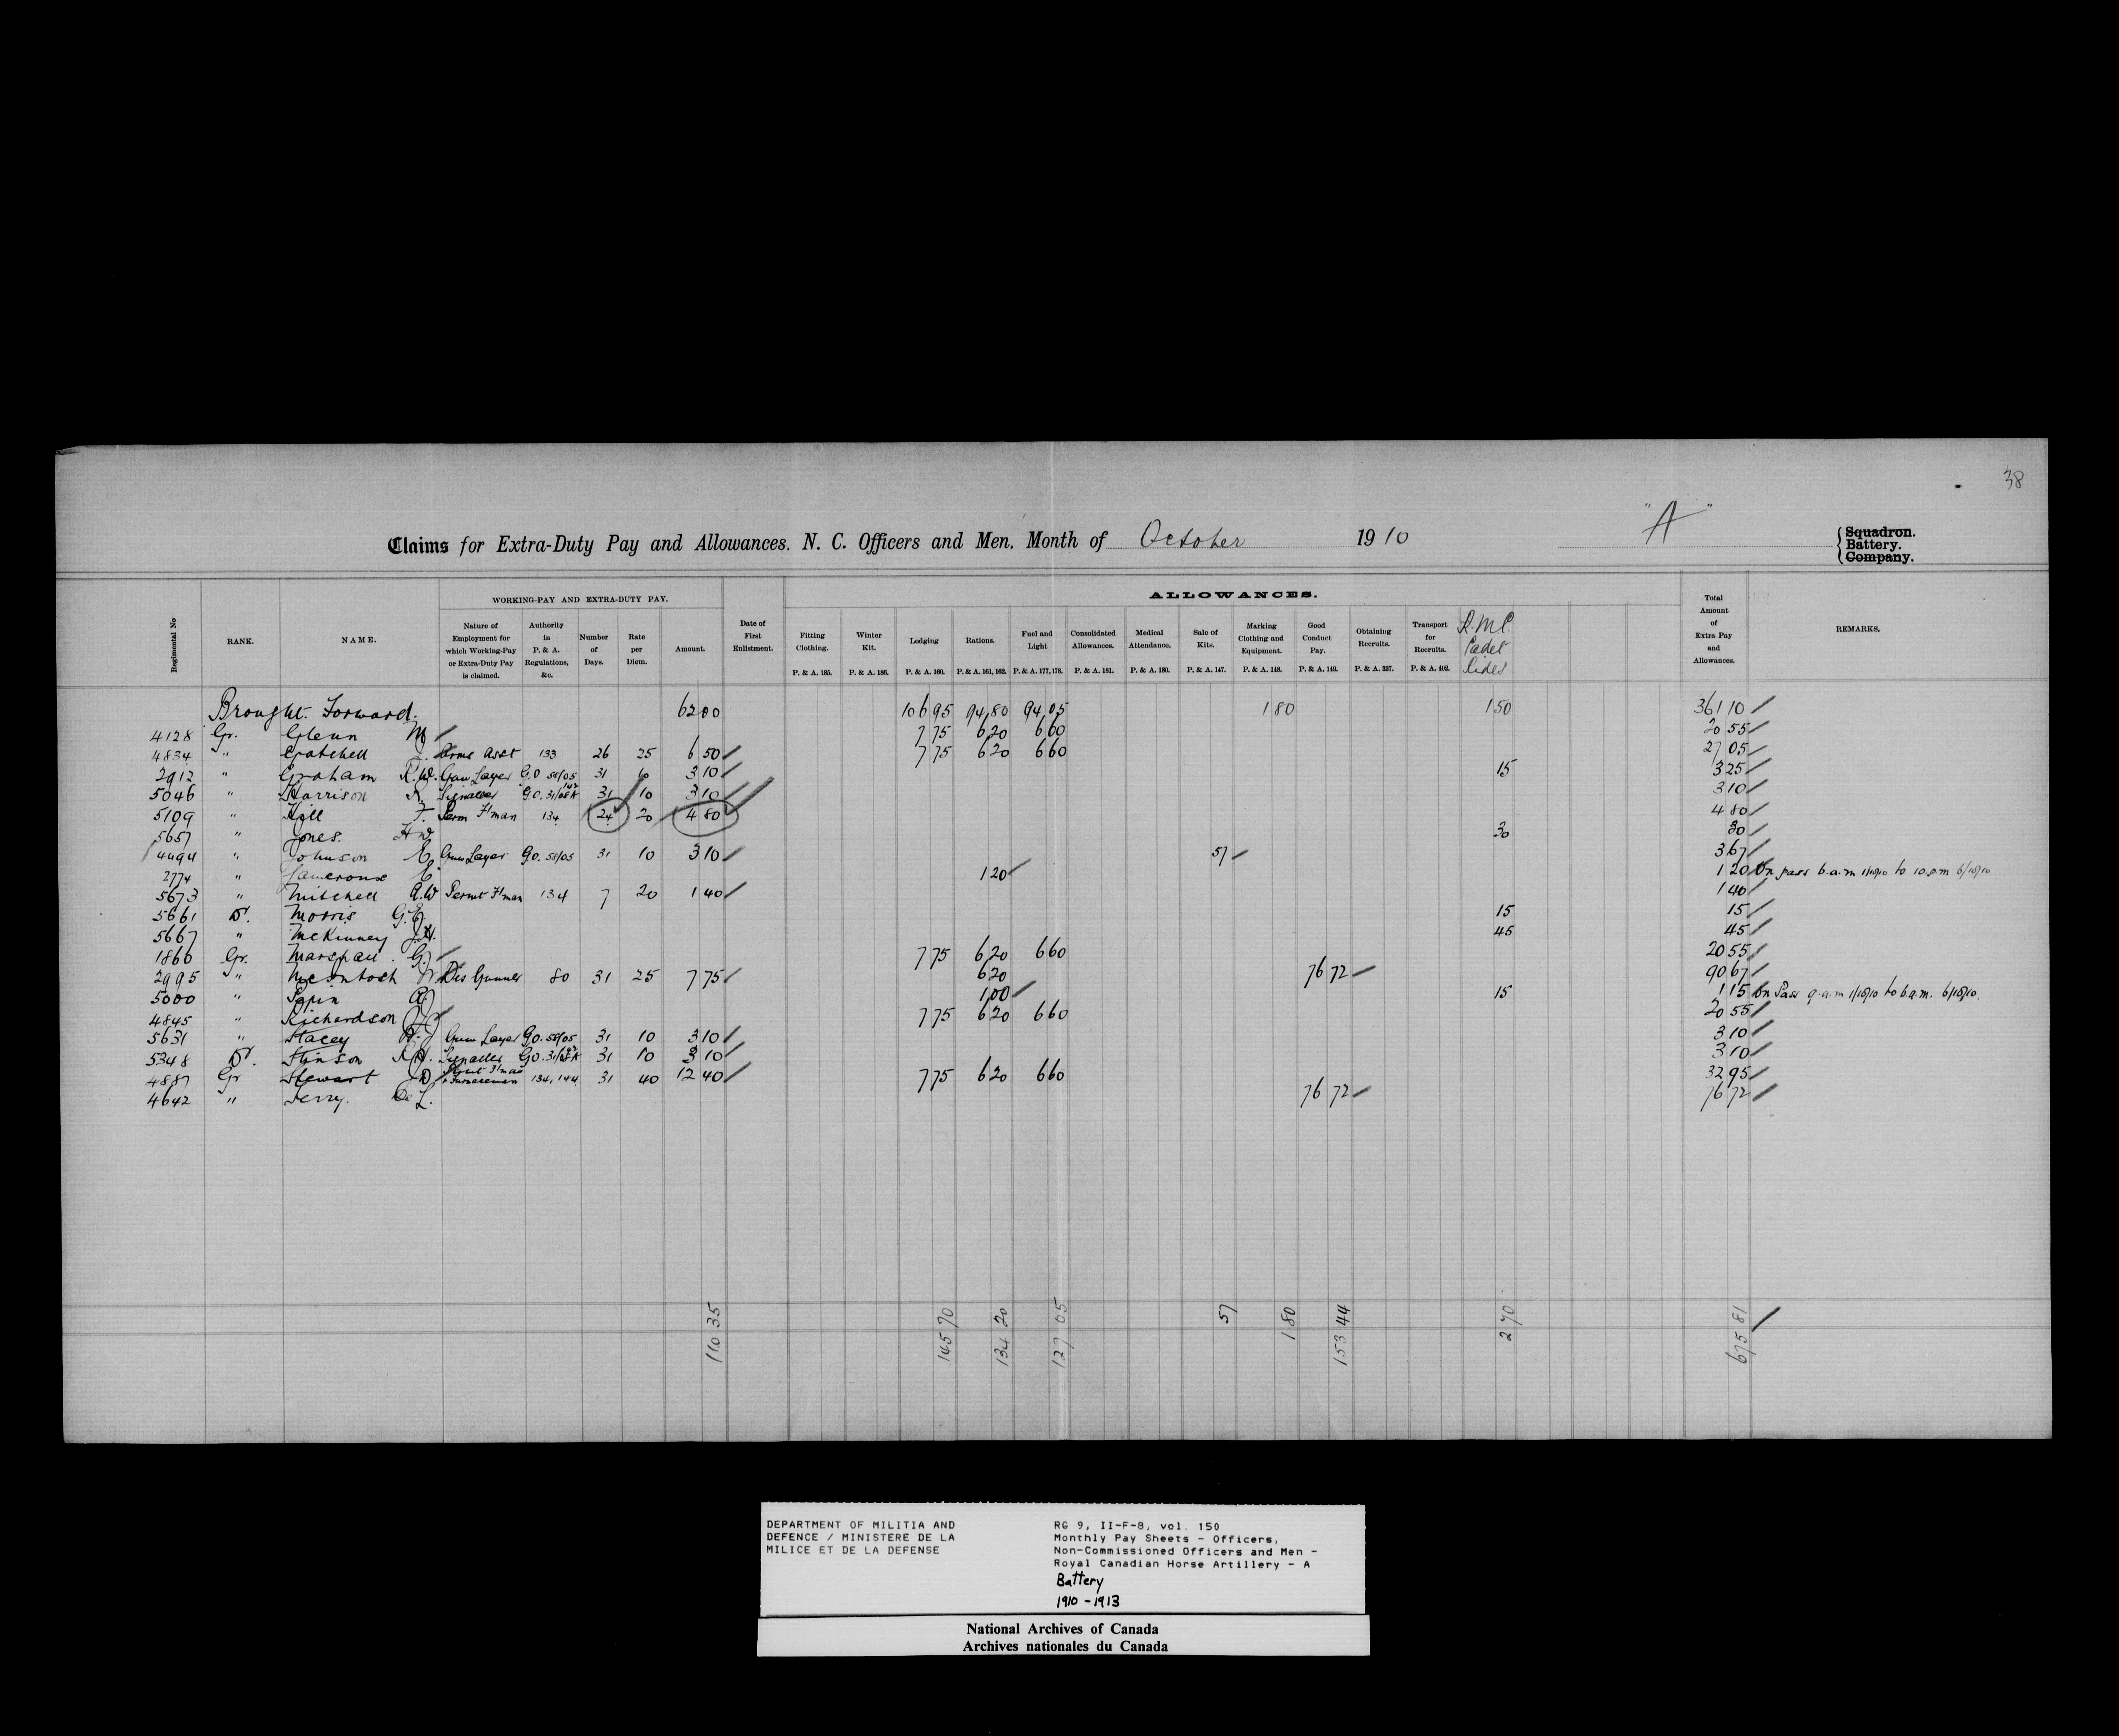 38
Claims for Extra-Duty Pay and Allowances. N. C. Officers and Men. Month of October 1910 "A" Squadron. Battery. Company.
WORKING-PAY AND EXTRA-DUTY PAY. ALLOWANCES.
Regimental No RANK. NAME. Nature of Employment for which Working-Pay or Extra-Duty Pay is claimed. Authority in P. & A. Regulations, &c. Number of Days. Rate per Diem. Amount. Date of First Enlistment. Fitting Clothing. P. & A. 185. Winter Kit. P. & A. 186. Lodging P. & A. 160. Rations. P. & A. 161, 162. Fuel and Light P. & A. 177, 178. Consolidated Allowances. P. & A. 181. Medical Attendance. P. & A. 180. Sale of Kits. P. & A. 147. Marking Clothing and Equipment. P. & A. 148. Good Conduct Pay. P. & A. 149. Obtaining Recruits. P. & A. 337. Transport for Recruits. P. & A. 402. R.M.C. Cadet Rides Total Amount of Extra Pay and Allowances. REMARKS.
Brought Forward. 62 00 106 95 94 80 94 05 1 80 1 50 361 10
4128 Gr. Glenn M 7 75 6 20 6 60 20 55
4834 " Gatchell Arms Asst 133 26 25 6 50 7 75 6 20 6 60 27 05
2912 " Graham R.W. Gun Layer G.O 58/05 31 10 3 10 15 3 25
5046 " Harrison R Signaller G.O. 31/08 31 10 3 10 3 10
5109 " Hill F. Perm F'man 134 24 20 4 80 4 80
5657 " Jones. H W 30 30
4494 " Johnson E Gun Layer G.O. 58/05 31 10 3 10 57 3 67
2774 " E 1 20 1 20 On pass 6 a.m 1/10/10 to 10 p.m 6/10/10
5673 " Mitchell A.W Permt F'man 134 7 20 1 40 1 40
5661 Dr. Morris G.E. 15 15
5667 " McKinney J.H. 45 45
1860 Gr. Marshall G. 7 75 6 20 6 60 20 55
2995 " McIntosh J Dis Gunner 80 31 25 7 75 6 20 76 72 90 67
5000 " A 1 00 15 1 15 On Pass 9 a.m 1/10/10 to 6 a.m. 6/10/10.
4845 " Richardson 7 75 6 20 6 60 20 55
5631 " Stacey H.J Gun Layer G.O. 58/05 31 10 3 10 3 10
5348 Dr. Stinson R.H. Signaller G.O. 31/08 31 10 3 10 3 10
4887 Gr Stewart D Permt F'man & Furnaceman 134, 144 31 40 12 40 7 75 6 20 6 60 32 95
4642 " Terry. De L. 76 72 76 72
110 35 145 70 134 20 127 05 57 1 80 153 44 2 70 675 81
DEPARTMENT OF MILITIA AND
DEFENCE / MINISTERE DE LA
MILICE ET DE LA DEFENSE
RG 9, II-F-8, vol. 150
Monthly Pay Sheets - Officers,
Non-Commissioned Officers and Men -
Royal Canadian Horse Artillery - A
Battery
1910 - 1913
National Archives of Canada
Archives nationales du Canada